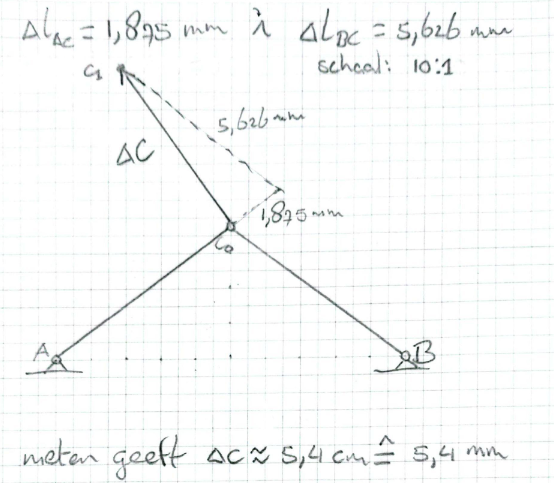 ΔL_AC = 1,875 mm & ΔL_BC = 5,626 mm
schaal: 10:1
C₁
5,626 mm
ΔC
1,875 mm
C₀
A
B
meten geeft ΔC ≈ 5,4 cm ≙ 5,4 mm